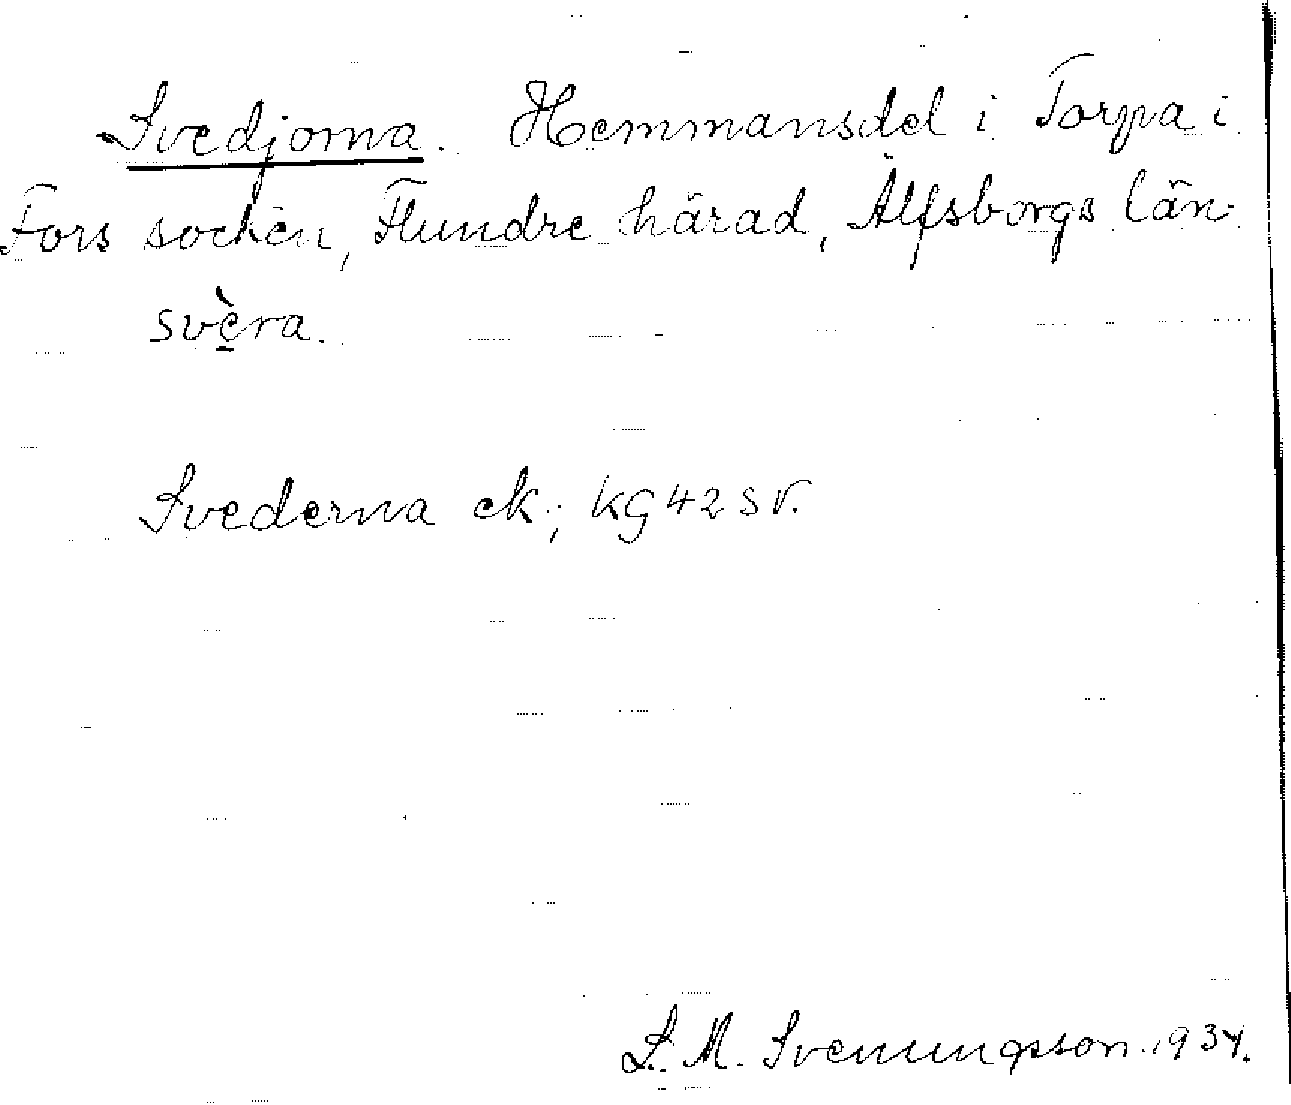 Svedjorna. Hemmansdel i Torpa i
Fors socken, Flundre härad, Älfsborgs län.
svè̱ra.
Svederna ek; KG 42 SV.
S. M. Svenungsson. 1934.